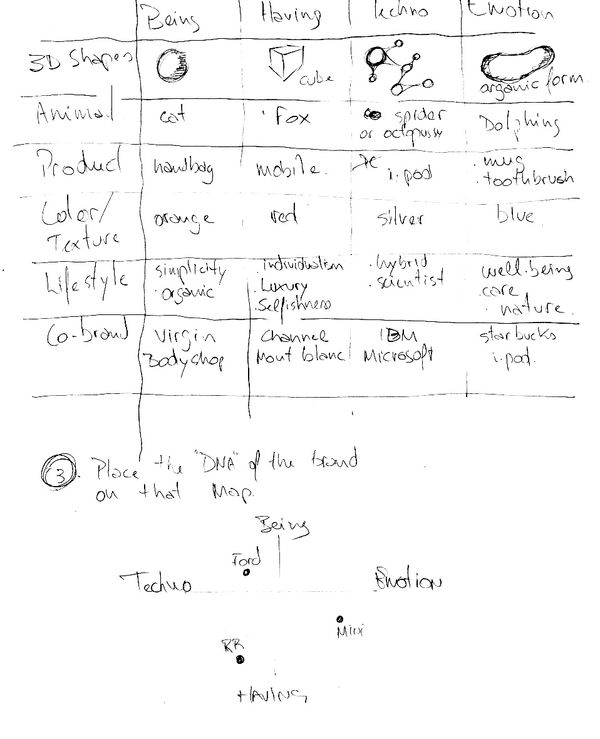 Being Having Techno Emotion
3D Shapes cube organic form
Animal cat Fox spider Dolphins
or octopussy
Product handbag mobile. i.pod .mug
.toothbrush
Color/ orange red silver blue
Texture
Lifestyle simplicity individualism .hybrid well-being
.organic .Luxury .scientist .care
.Selfishness . nature.
Co-brand Virgin Channel IBM starbucks
Bodyshop Mont blanc Microsoft i.pod.
3. Place the "DNA" of the brand
on that Map.
Being
Ford
Techno Emotion
Mini
RR
HAVING